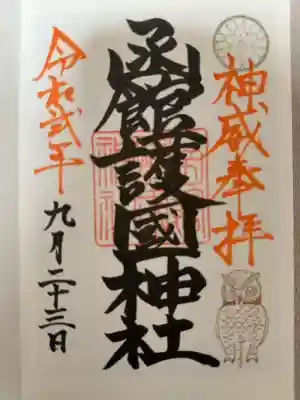 神威奉拝
函館護國神社
令和弐年
九月二十三日